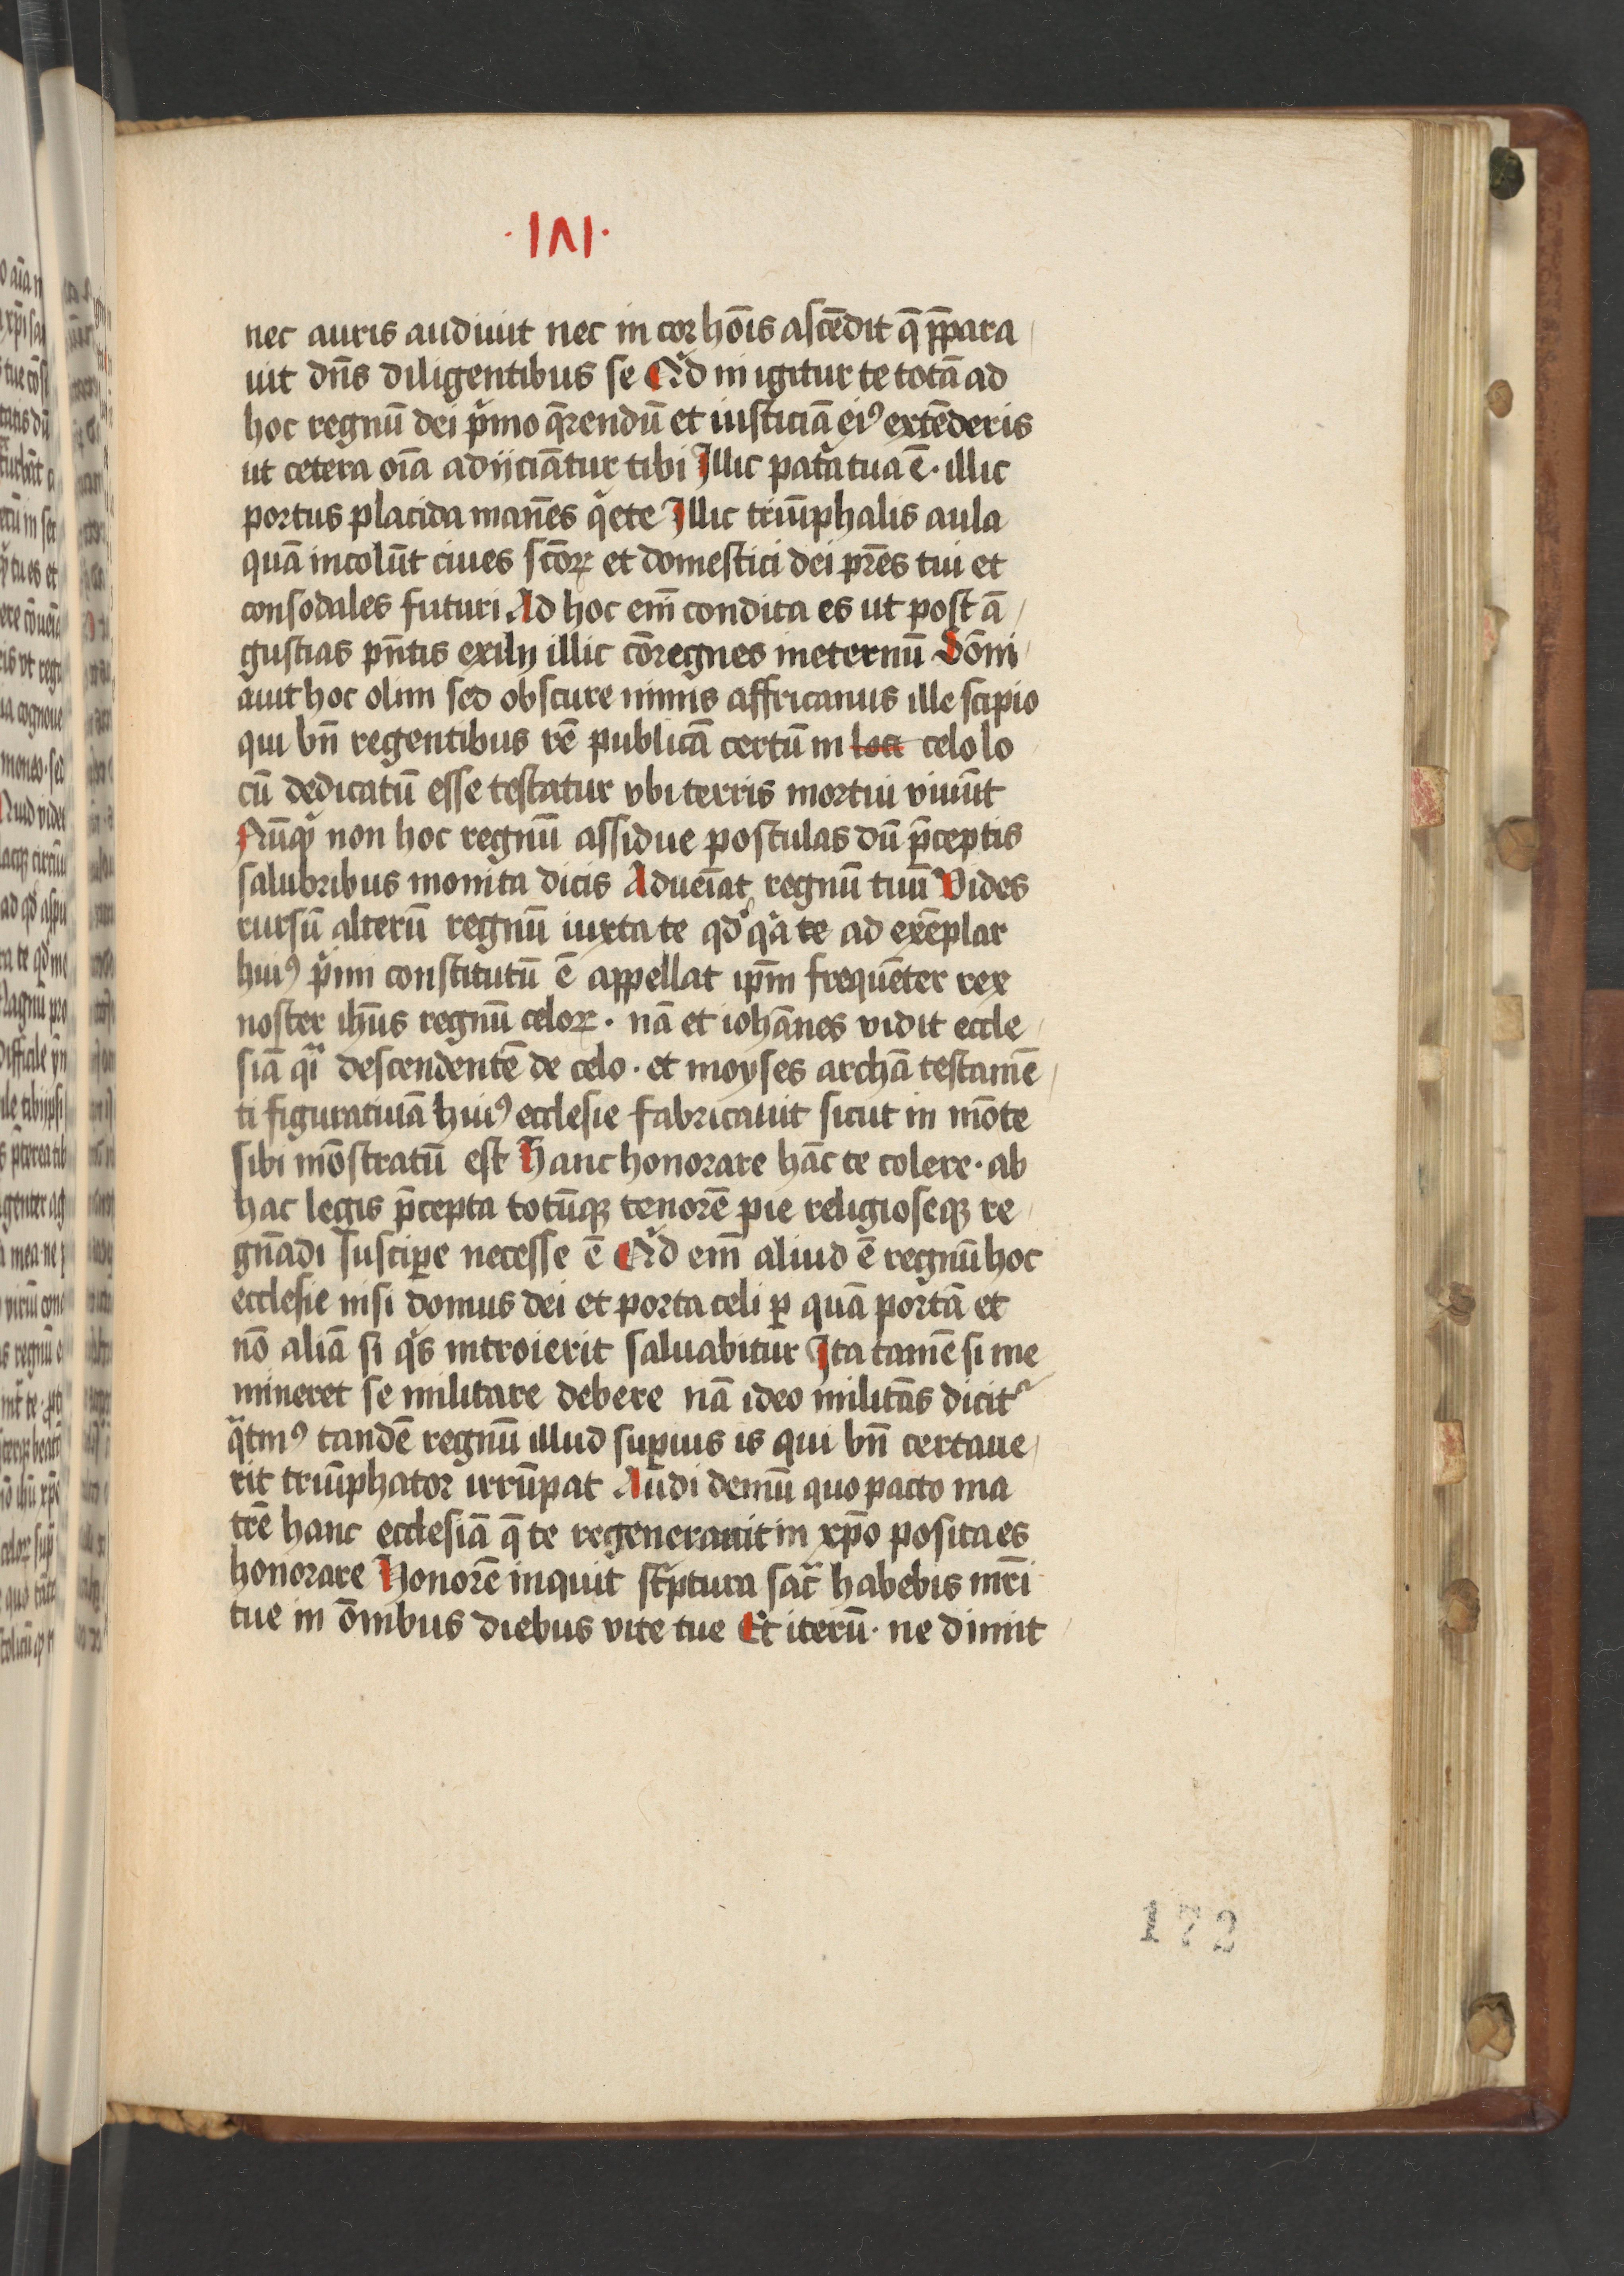 ·1Λ1·
nec auris audiuit nec in cor hoīs ascēdit q̄ pp̄ara
uit dn̄s diligentibus se Qͥd ni igitur te totā ad
hoc regnū dei pͥmo q̄rendū et iusticiā eiꝰ extēderis
ut cetera oīa adijciātur tibi Illic patͥa tua ē · illic
portus placida manēs qͥete Illic triūphalis aula
quā incolūt ciues sctōꝝ et domestici dei pr̄es tui et
consodales futuri Ad hoc em̄ condita es ut post ā
gustias pn̄tis exilij illic cōregnes in eternū Sōmni
auit hoc olim sed obscure nimis affricanus ille scipio
qui bn̄ regentibus rē publicā certū in loc celo lo
cū dedicatū esse testatur vbi terris mortui viuūt
Nūqͥd non hoc regnū assidue postulas dū p̄ceptis
salubribus monita dicis Adueīat regnū tuū Vides
rursū alterū regnū iuxta te qd̓ qͣ te ad exēplar
huiꝰ pͥmi constitutū ē appellat ip̄m frequēter rex
noster ih̄us regnū celoꝝ · nā et iohānes vidit eccle
siā qͣi descendentē de celo · et moyses archā testamē
ti figuratiuā huiꝰ ecclesie fabricauit sicut in mōte
sibi mōstratū est Hanc honorare hāc te colere · ab
hac legis p̄cepta totūqꝫ tenorē pie religioseqꝫ re
gnādi suscipꝑe necesse ē Qͥd em̄ aliud ē regnū hoc
ecclesie nisi domus dei et porta celi ꝑ quā portā et
nō aliā si qͥs introierit saluabitur Ita tamē si me
mineret se militare debere nā ideo militās dicitᷣ
qͣtinꝰ tandē regnū illud suꝑius is qui bn̄ certaue
rit triūphator irrūpat Audi demū quo pacto ma
trē hanc ecclesiā q̄ te regenerauit in xp̄o posita es
honorare Honorē inquit scͥptura sacͣ habebis mr̄i
tue in ōnibus diebus vite tue Et iterū · ne dimit
172